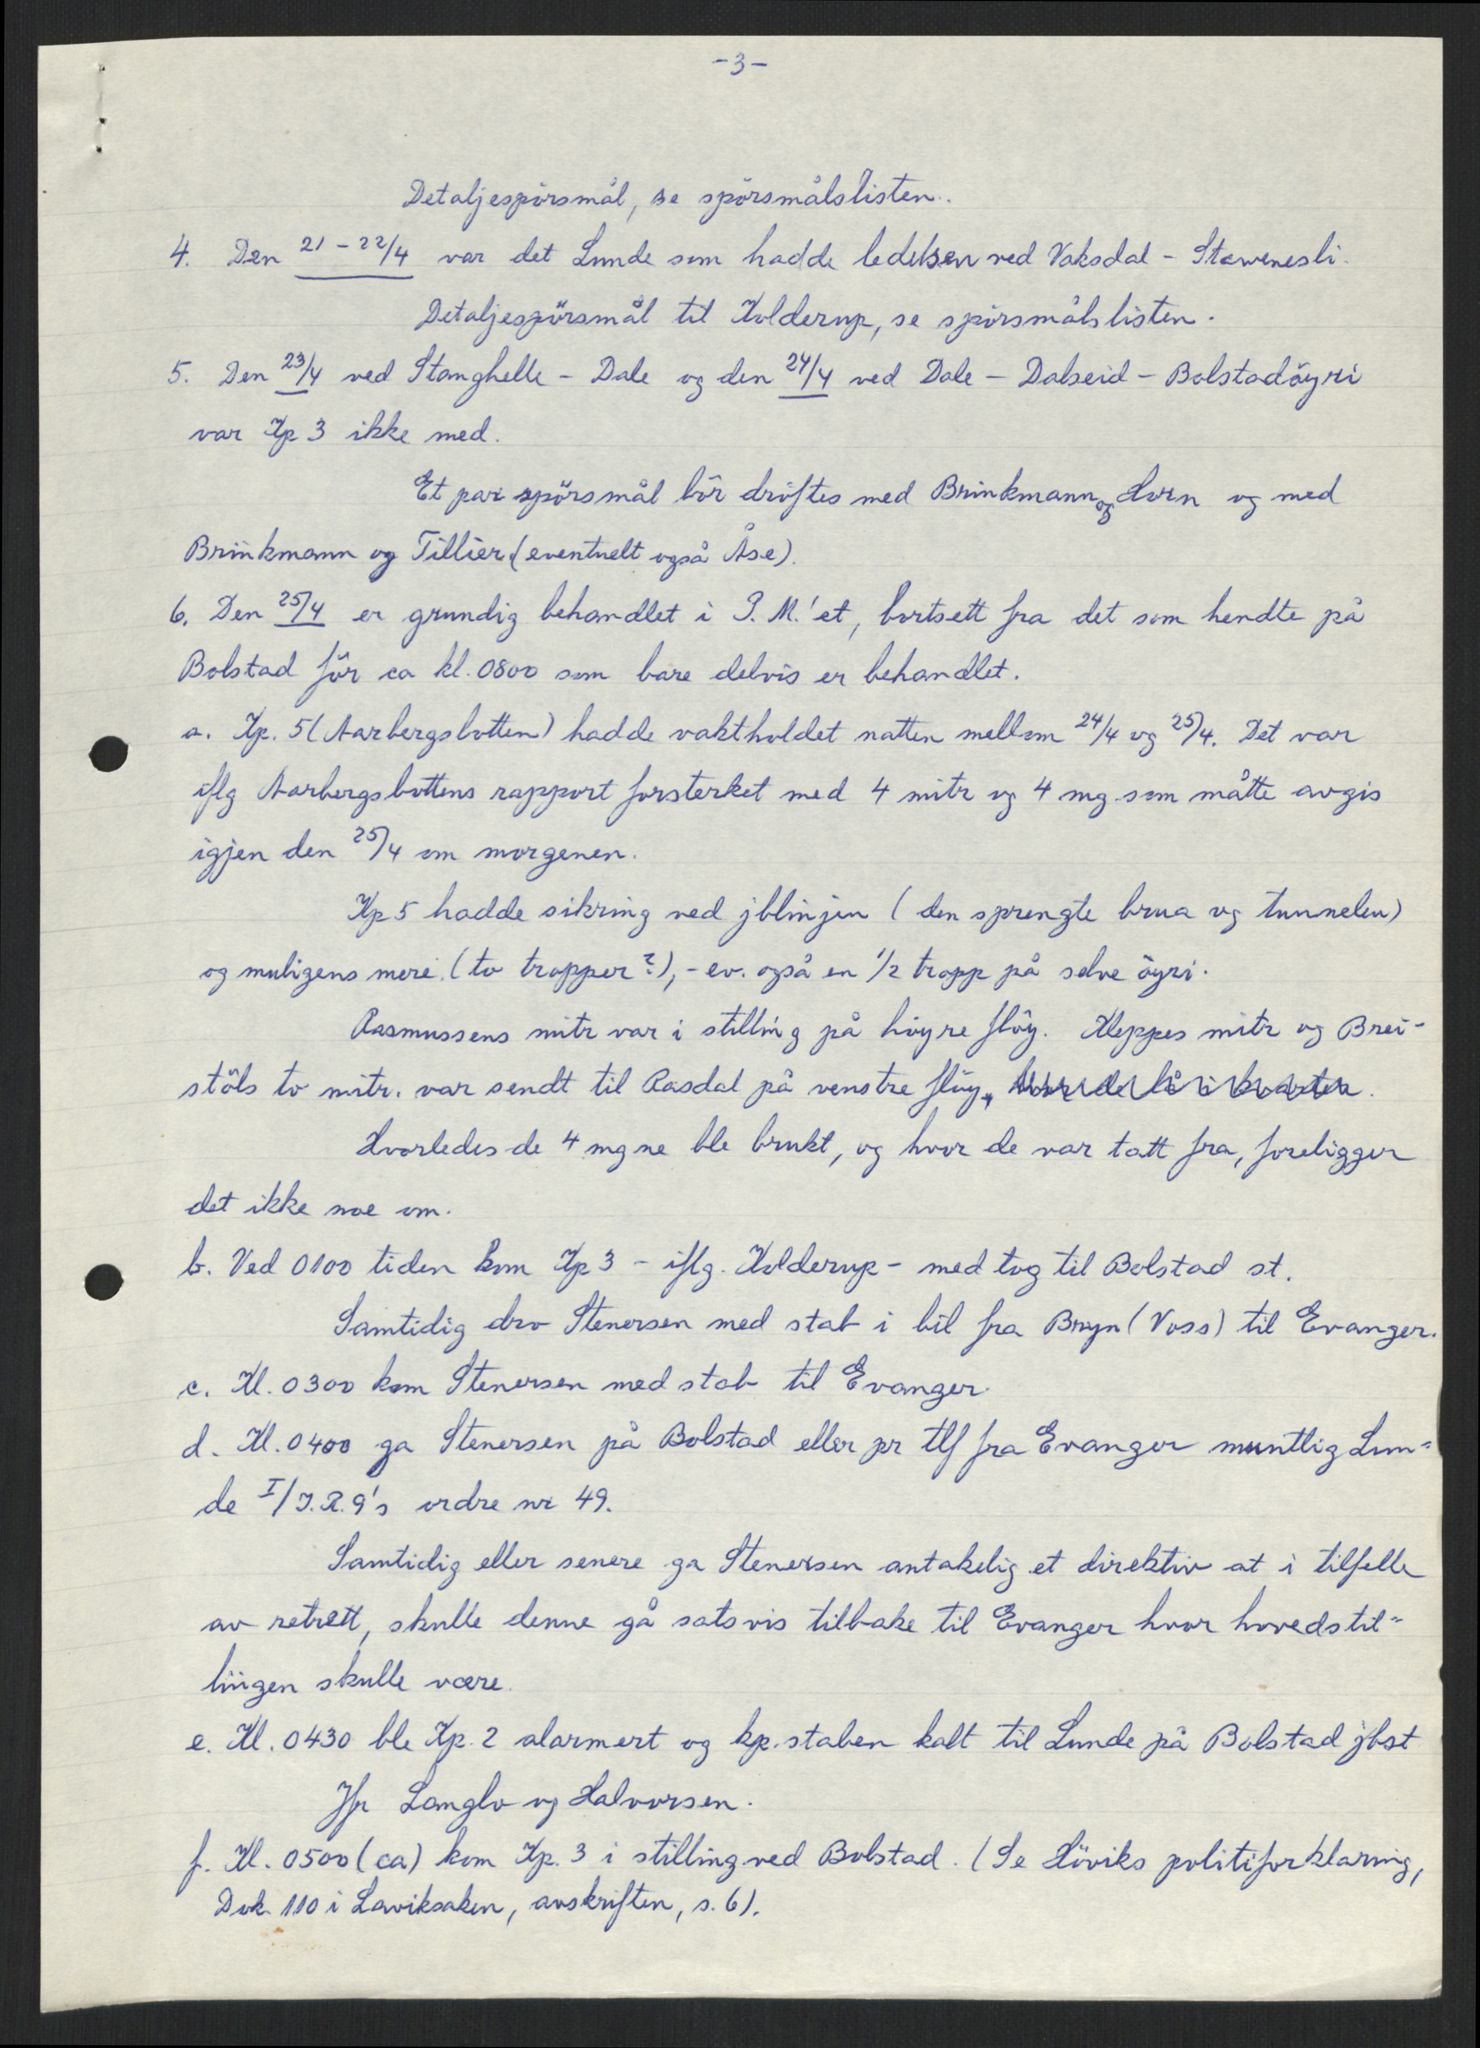 -3-
Detaljespörsmål, se spörsmålslisten.
4. Den 21-22/4 var det Lunde som hadde ledelsen ved Vaksdal - Stavenesli.
Detaljespörsmål til Holderup, se spörsmålslisten.
5. Den 23/4 ved Stanghelle - Dale og den 24/4 ved Dale - Dalseid - Bolstadöyri
var Kp 3 ikke med.
Et par spörsmål bör dröftes med Brinkmann og Horn og med
Brinkmann og Tillier (eventuelt også Åse).
6. Den 25/4 er grundig behandlet i P.M.'et, bortsett fra det som hendte på
Bolstad för ca kl. 0800 som bare delvis er behandlet.
a. Kp. 5 (Aarbergsbotten) hadde vaktholdet natten mellom 24/4 og 25/4. Det var
iflg Aarbergsbottens rapport forsterket med 4 mitr og 4 mg som måtte avgis
igjen den 25/4 om morgenen.
Kp 5 hadde sikring ved jblinjen (den sprengte brua og tunnelen)
og muligens mere (to tropper?), - ev. også en 1/2 tropp på selve öyri.
Rasmussens mitr var i stilling på höyre flöy. Kleppes mitr og Brei-
stöls to mitr. var sendt til Rasdal på venstre flöy, hvor de lå i kvarter.
Hvorledes de 4 mgne ble brukt, og hvor de var tatt fra, foreligger
det ikke noe om.
b. Ved 0100 tiden kom Kp 3 - iflg. Holderup - med tog til Bolstad st.
Samtidig dro Stenersen med stab i bil fra Bryn (Voss) til Evanger.
c. Kl. 0300 kom Stenersen med stab til Evanger.
d. Kl. 0400 ga Stenersen på Bolstad eller pr tlf fra Evanger muntlig Lun-
de I/J.R.9's ordre nr 49.
Samtidig eller senere ga Stenersen antakelig et direktiv at i tilfelle
av retrett, skulle denne gå satsvis tilbake til Evanger hvor hovedstil-
lingen skulle være.
e. Kl. 0430 ble Kp. 2 alarmert og kp.staben kalt til Lunde på Bolstad jbst
Jfr Langlo og Halvorsen.
f. Kl. 0500 (ca) kom Kp. 3 i stilling ved Bolstad. (Se Höviks politiforklaring,
Dok. 110 i Laviksaken, avskriften, s. 6).